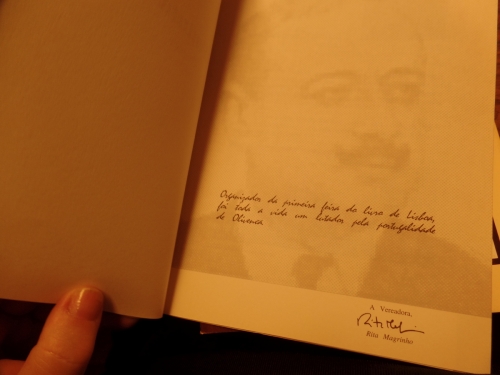 Organizador da primeira feira do livro de Lisboa,
foi toda a vida um lutador pela portugalidade
de Olivença
A Vereadora,
Rita Magrinho